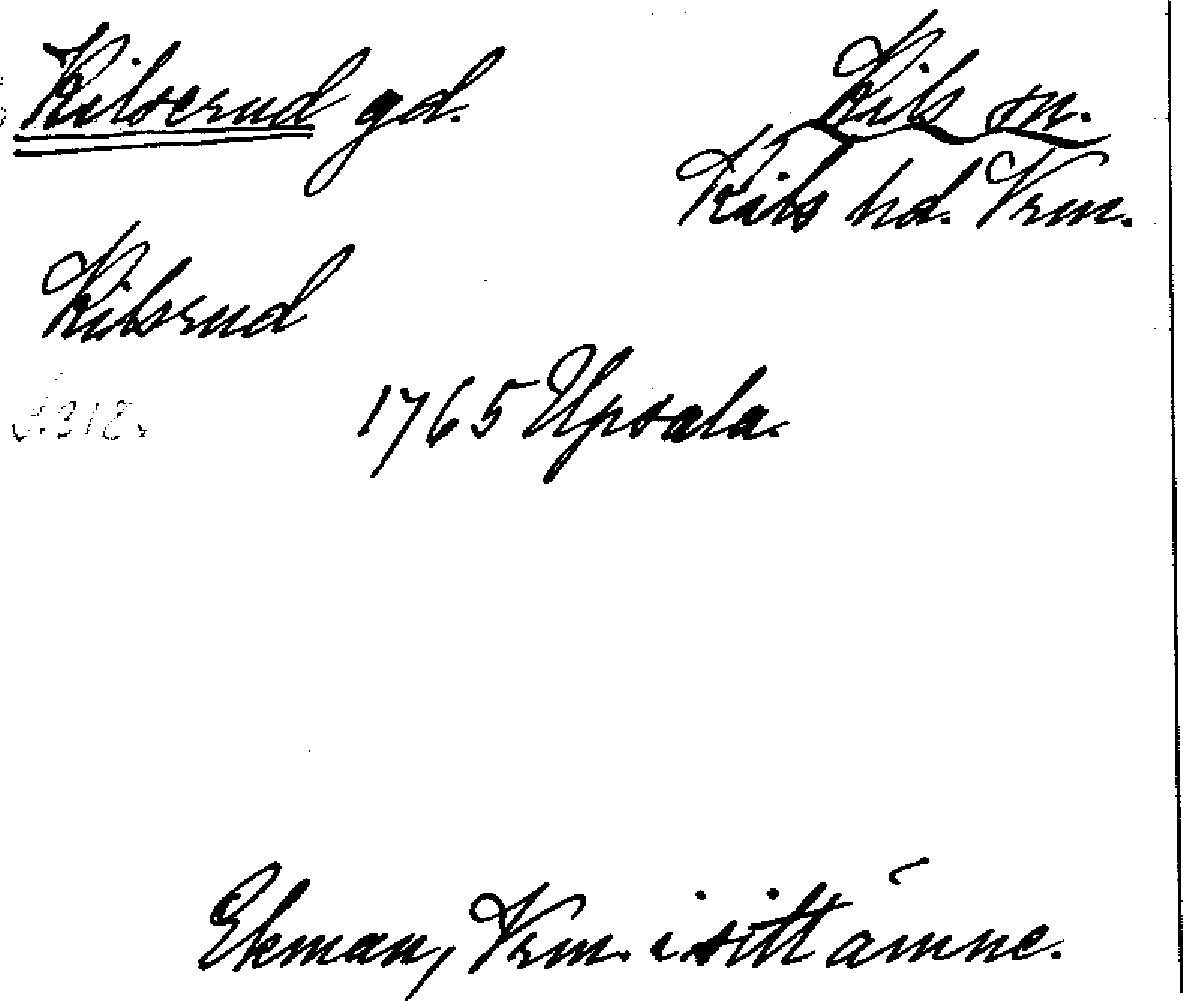 Kilserud gd.
Kils sn.
Kils hd. Vrm.
Kilsrud
1765 Upsala.
Ekman, Vrm. i sitt ämne.